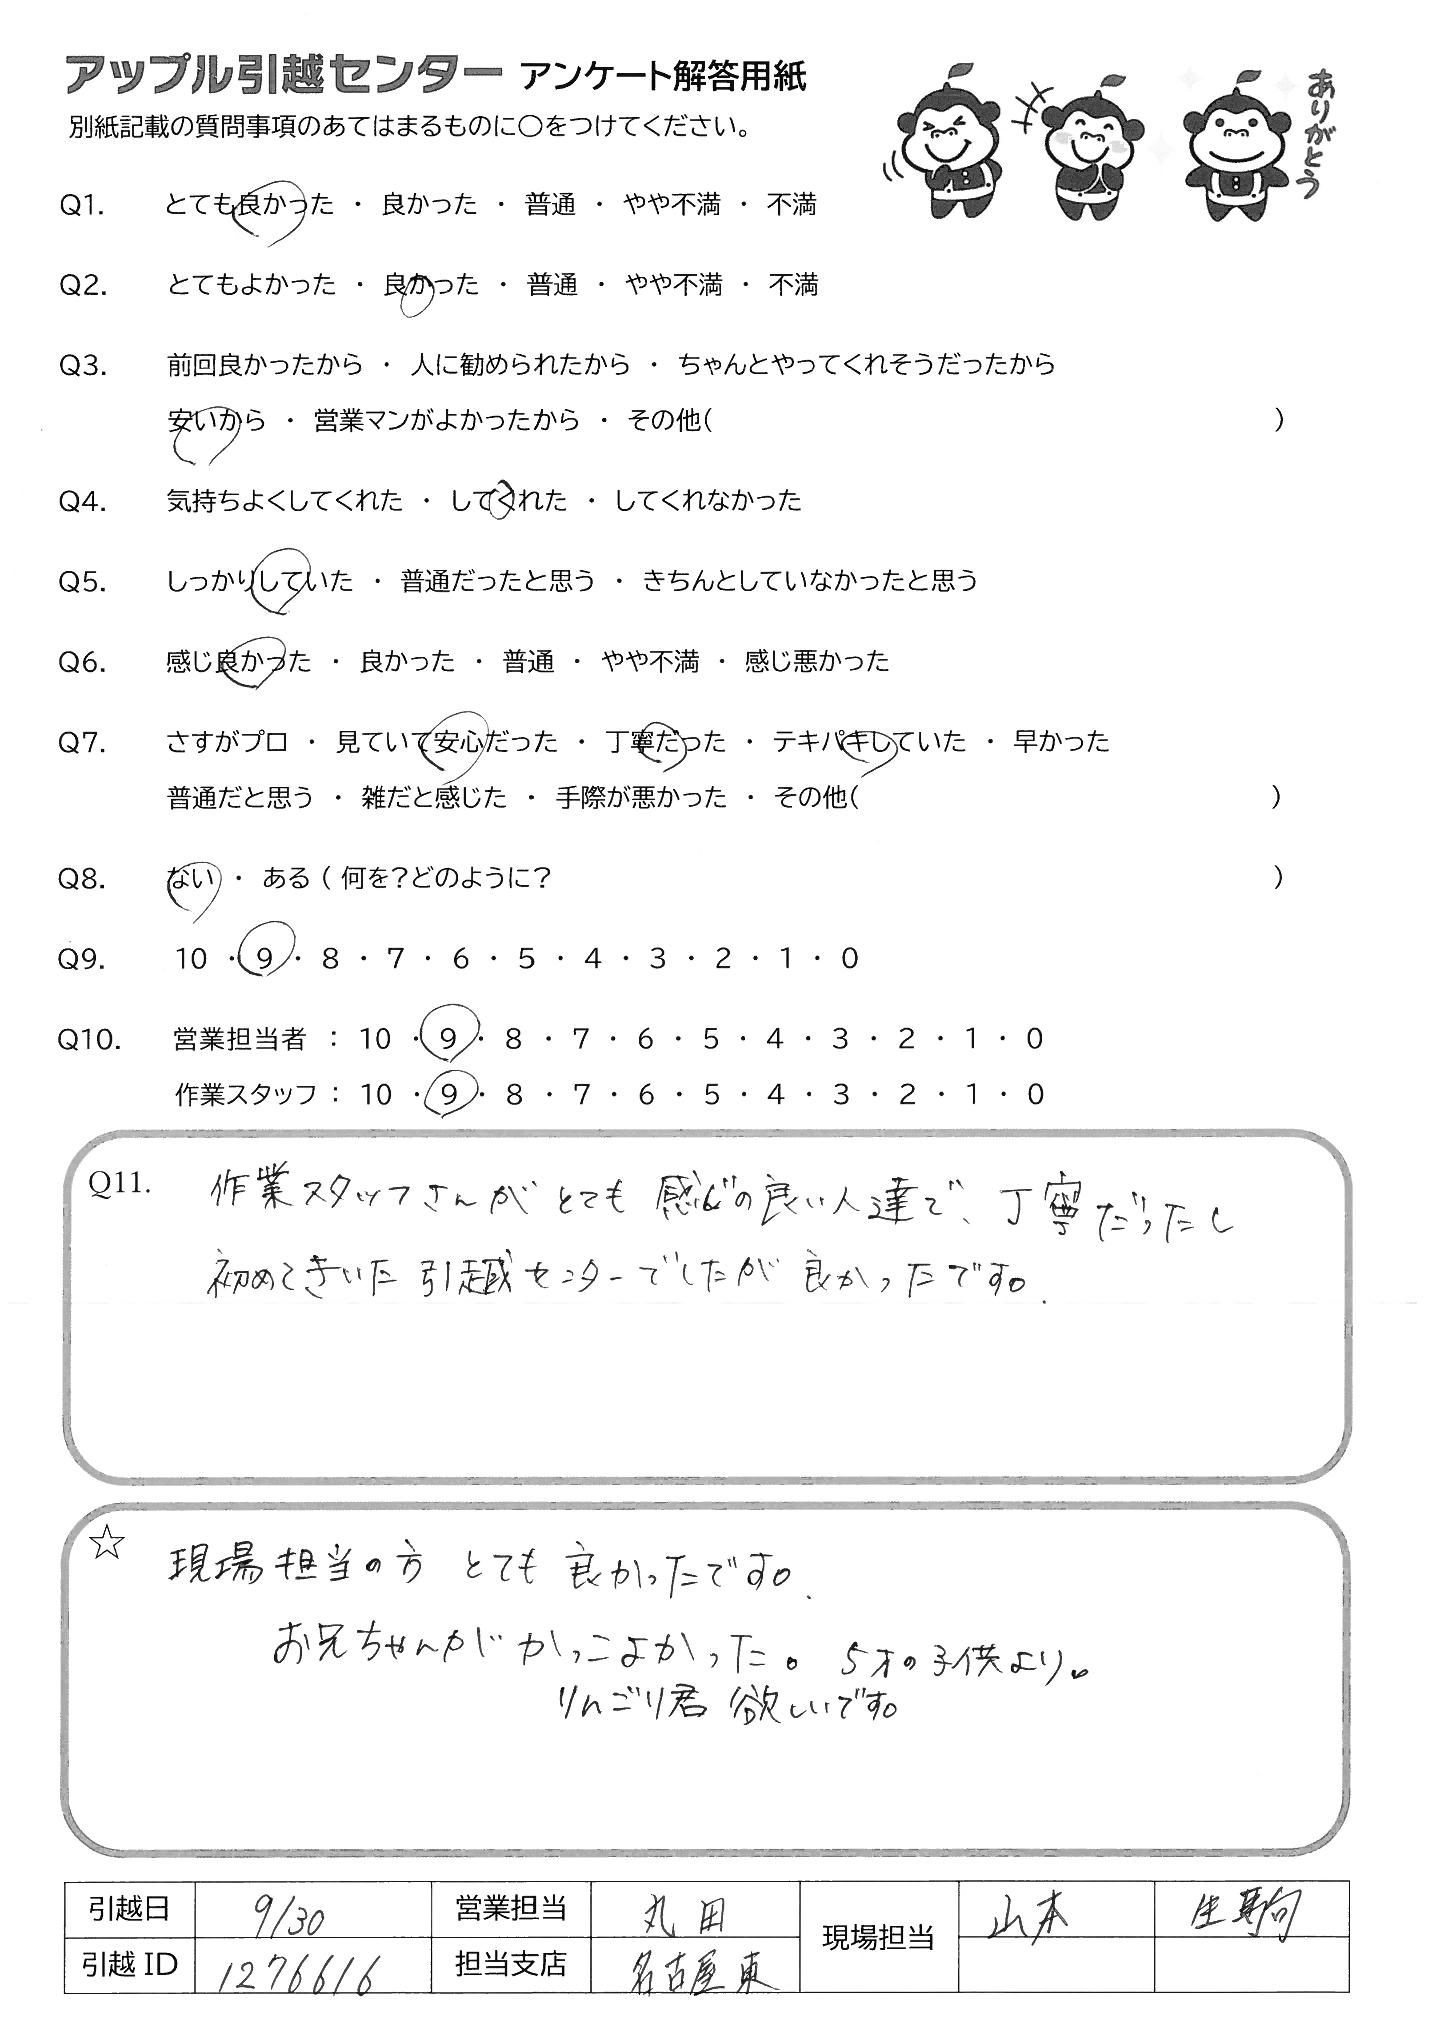 アップル引越センター アンケート解答用紙
ありがとう
別紙記載の質問事項のあてはまるものに○をつけてください。
Q1. とても良かった ・ 良かった ・ 普通 ・ やや不満 ・ 不満
Q2. とてもよかった ・ 良かった ・ 普通 ・ やや不満 ・ 不満
Q3. 前回良かったから ・ 人に勧められたから ・ ちゃんとやってくれそうだったから
安いから ・ 営業マンがよかったから ・ その他( )
Q4. 気持ちよくしてくれた ・ してくれた ・ してくれなかった
Q5. しっかりしていた ・ 普通だったと思う ・ きちんとしていなかったと思う
Q6. 感じ良かった ・ 良かった ・ 普通 ・ やや不満 ・ 感じ悪かった
Q7. さすがプロ ・ 見ていて安心だった ・ 丁寧だった ・ テキパキしていた ・ 早かった
普通だと思う ・ 雑だと感じた ・ 手際が悪かった ・ その他( )
Q8. ない ・ ある ( 何を?どのように? )
Q9. 10 ・ 9 ・ 8 ・ 7 ・ 6 ・ 5 ・ 4 ・ 3 ・ 2 ・ 1 ・ 0
Q10. 営業担当者 : 10 ・ 9 ・ 8 ・ 7 ・ 6 ・ 5 ・ 4 ・ 3 ・ 2 ・ 1 ・ 0
作業スタッフ : 10 ・ 9 ・ 8 ・ 7 ・ 6 ・ 5 ・ 4 ・ 3 ・ 2 ・ 1 ・ 0
Q11. 作業スタッフさんがとても感じの良い人達で、丁寧だったし
初めてきいた引越センターでしたが良かったです。
☆ 現場担当の方 とても良かったです。
お兄ちゃんがかっこよかった。5才の子供より。
りんごり君欲しいです。
引越日 9/30 営業担当 丸田 現場担当 山本 生駒
引越ID 1276616 担当支店 名古屋東